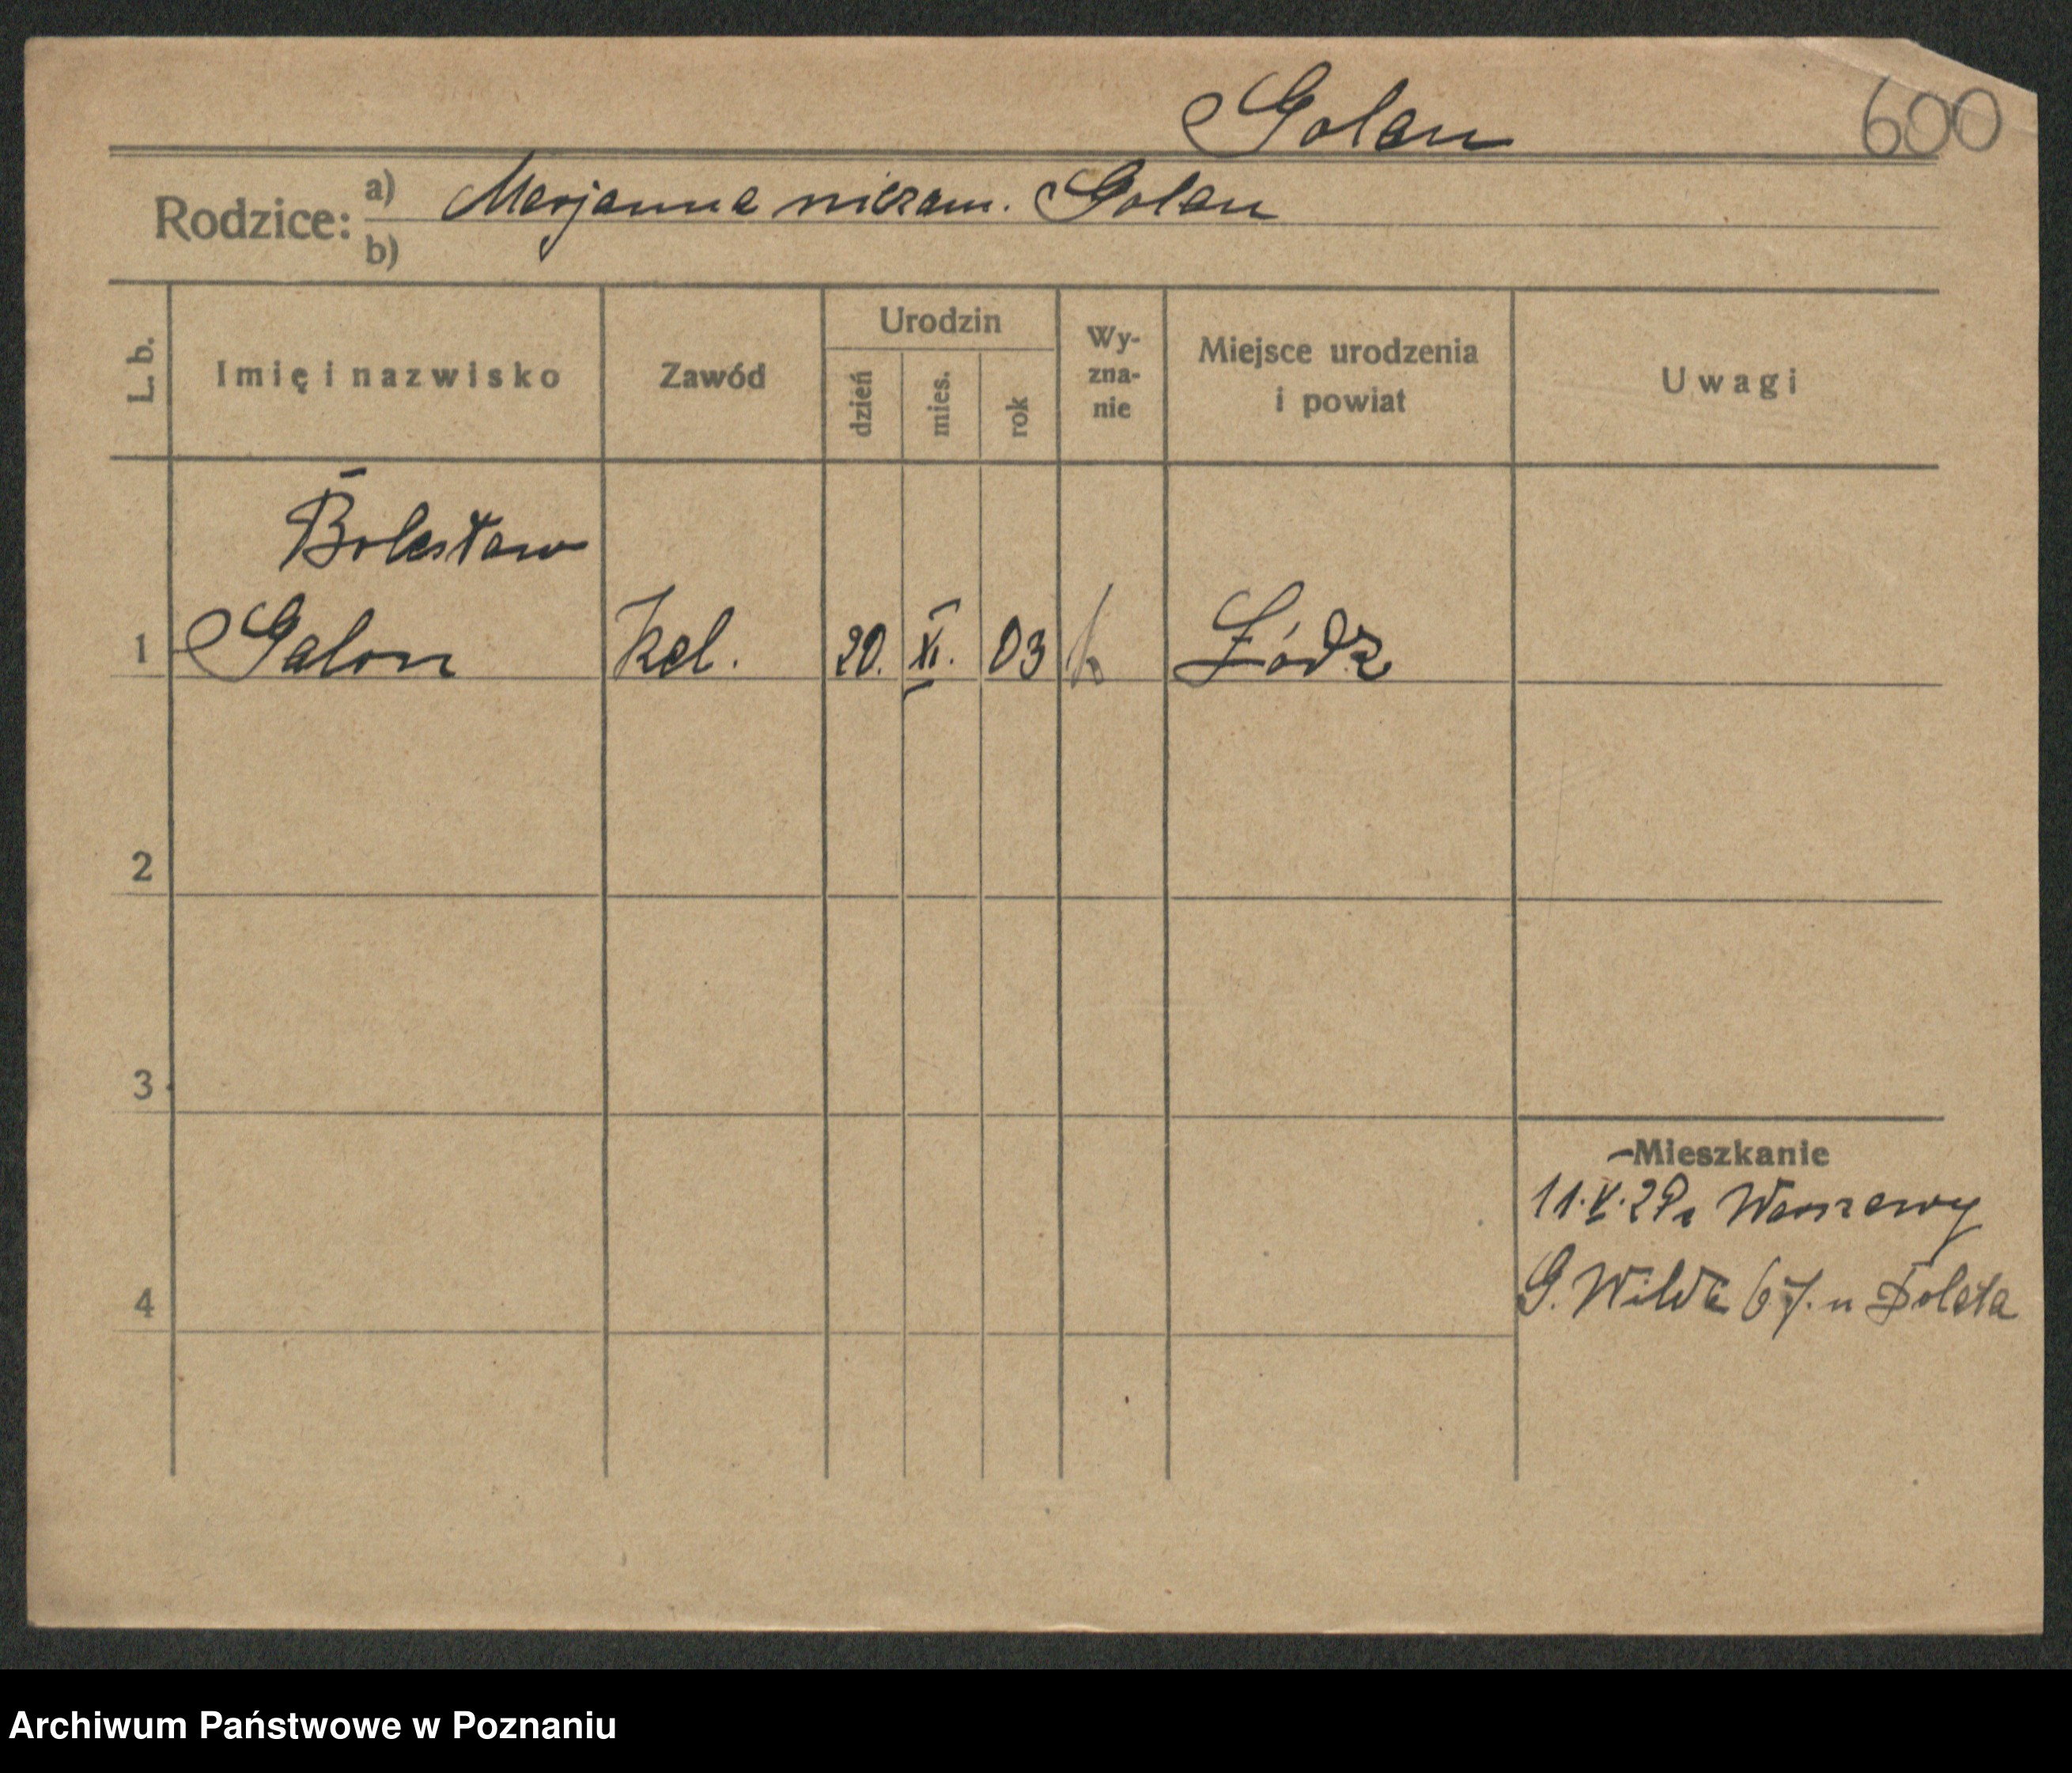 Golan 600
Rodzice: a) Marjanna niezam. Golan
b)
L. b. Imię i nazwisko Zawód Urodzin dzień mies. rok Wy-zna-nie Miejsce urodzenia i powiat Uwagi
Bolesław
1 Galon kel. 20. XI. 03 k Łódz
2
3
Mieszkanie
11.V.29 z Warszawy
4
G. Wilda 67. u
Archiwum Państwowe w Poznaniu